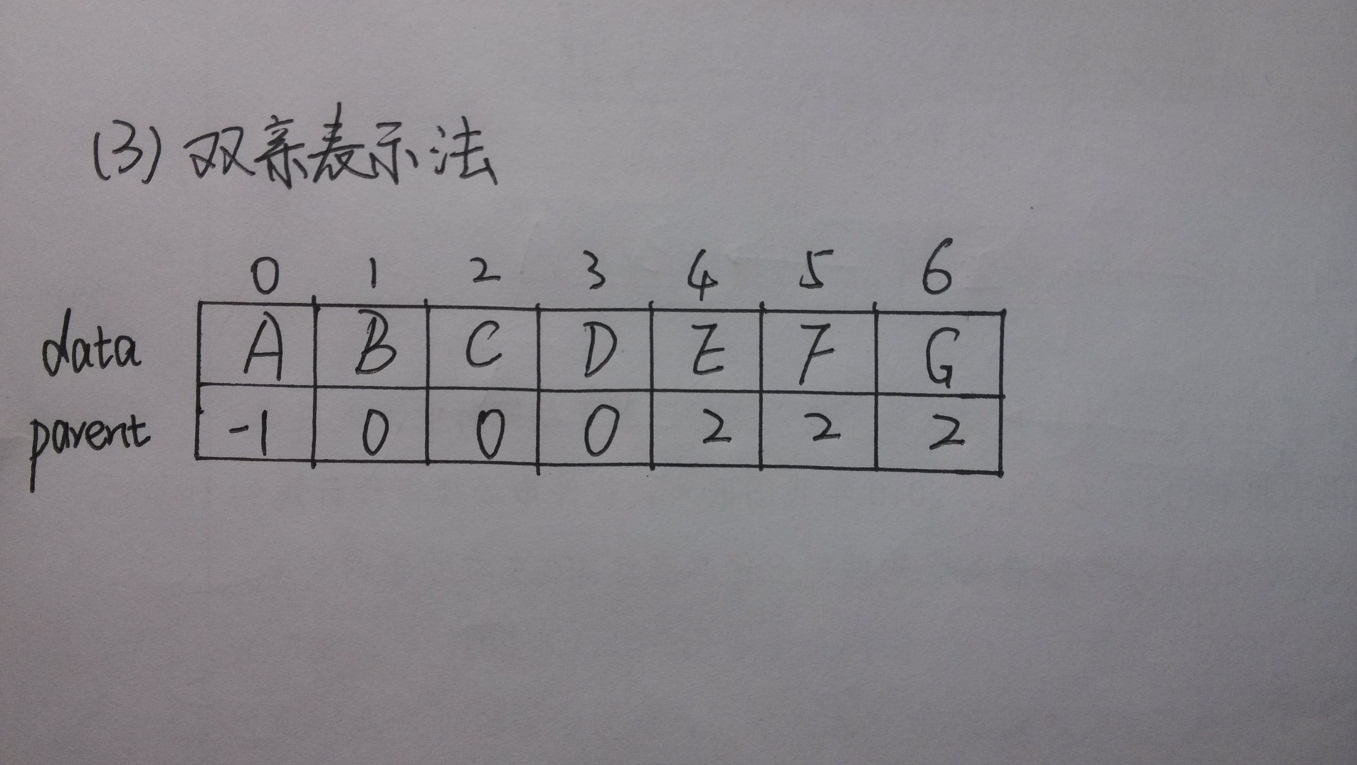 (3) 双亲表示法
0 1 2 3 4 5 6
data A B C D E F G
parent -1 0 0 0 2 2 2